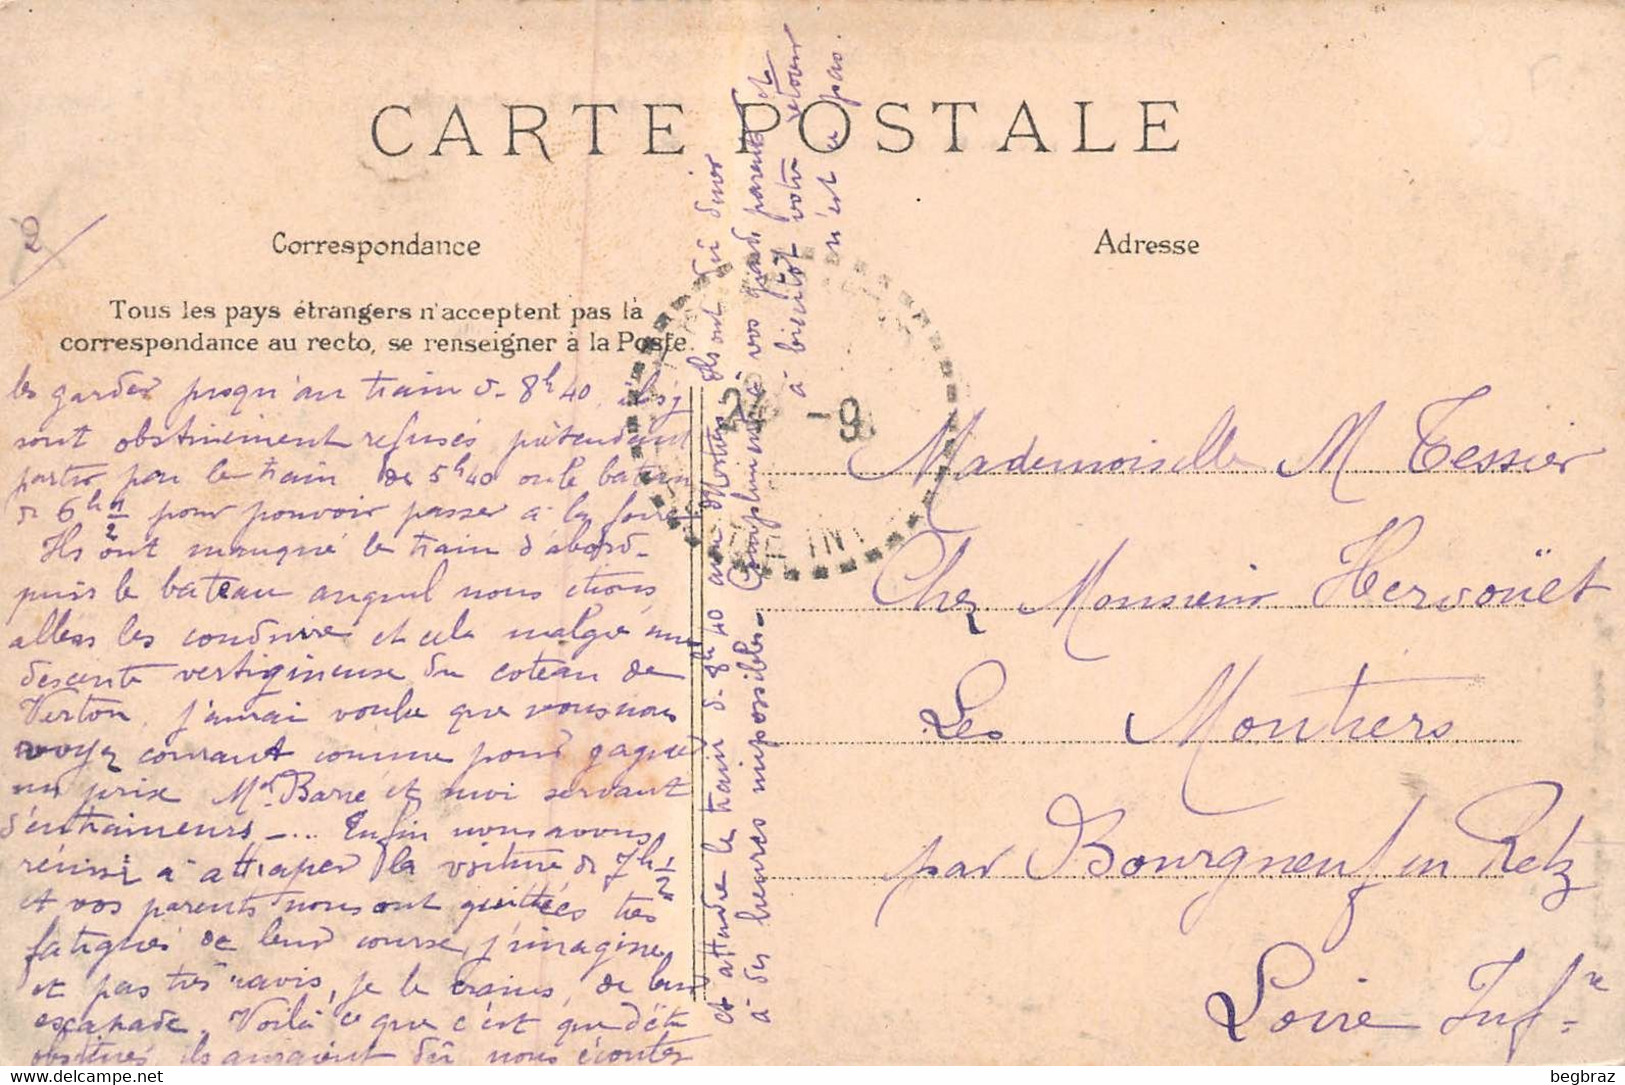 CARTE POSTALE
Correspondance
Adresse
Tous les pays étrangers n'acceptent pas la
correspondance au recto, se renseigner à la Poste.
les garder jusqu'au train d. 8h40. ils s'y
sont obstinément refusés prétendant
partir par le train de 5h40 ou le bateau
de 6h1/2 pour pouvoir passer à la foire
Ils ont manqué le train d'abord.
puis le bateau auquel nous étions
allés les conduire et cela malgré une
descente vertigineuse du coteau de
Verton. j'aurai voulu que vous nous
voyez courant comme pour gagner
un prix Mr. Barré et moi servant
d'entraineurs_... Enfin nous avons
réussi à attraper la voiture de 7h1/2
et vos parents nous ont quittées très
fatigués de leur course, j'imagine,
et pas très ravis, je le crains, de leur
escapade. Voilà ce que c'est que d'être
obstinés, ils auraient dû nous écouter
et attendre le train d. 8h40 aux
à des heures impossibles.
Ils ont dû dîner
Compliments à vos grds parents et
à bientôt votre retour
n'est-ce pas.
2
24 -9
Mademoiselle M Tessier
Chez Monsieur Hervoüet
Les Moutiers
par Bourgneuf en Retz
Loire Infre
begbraz